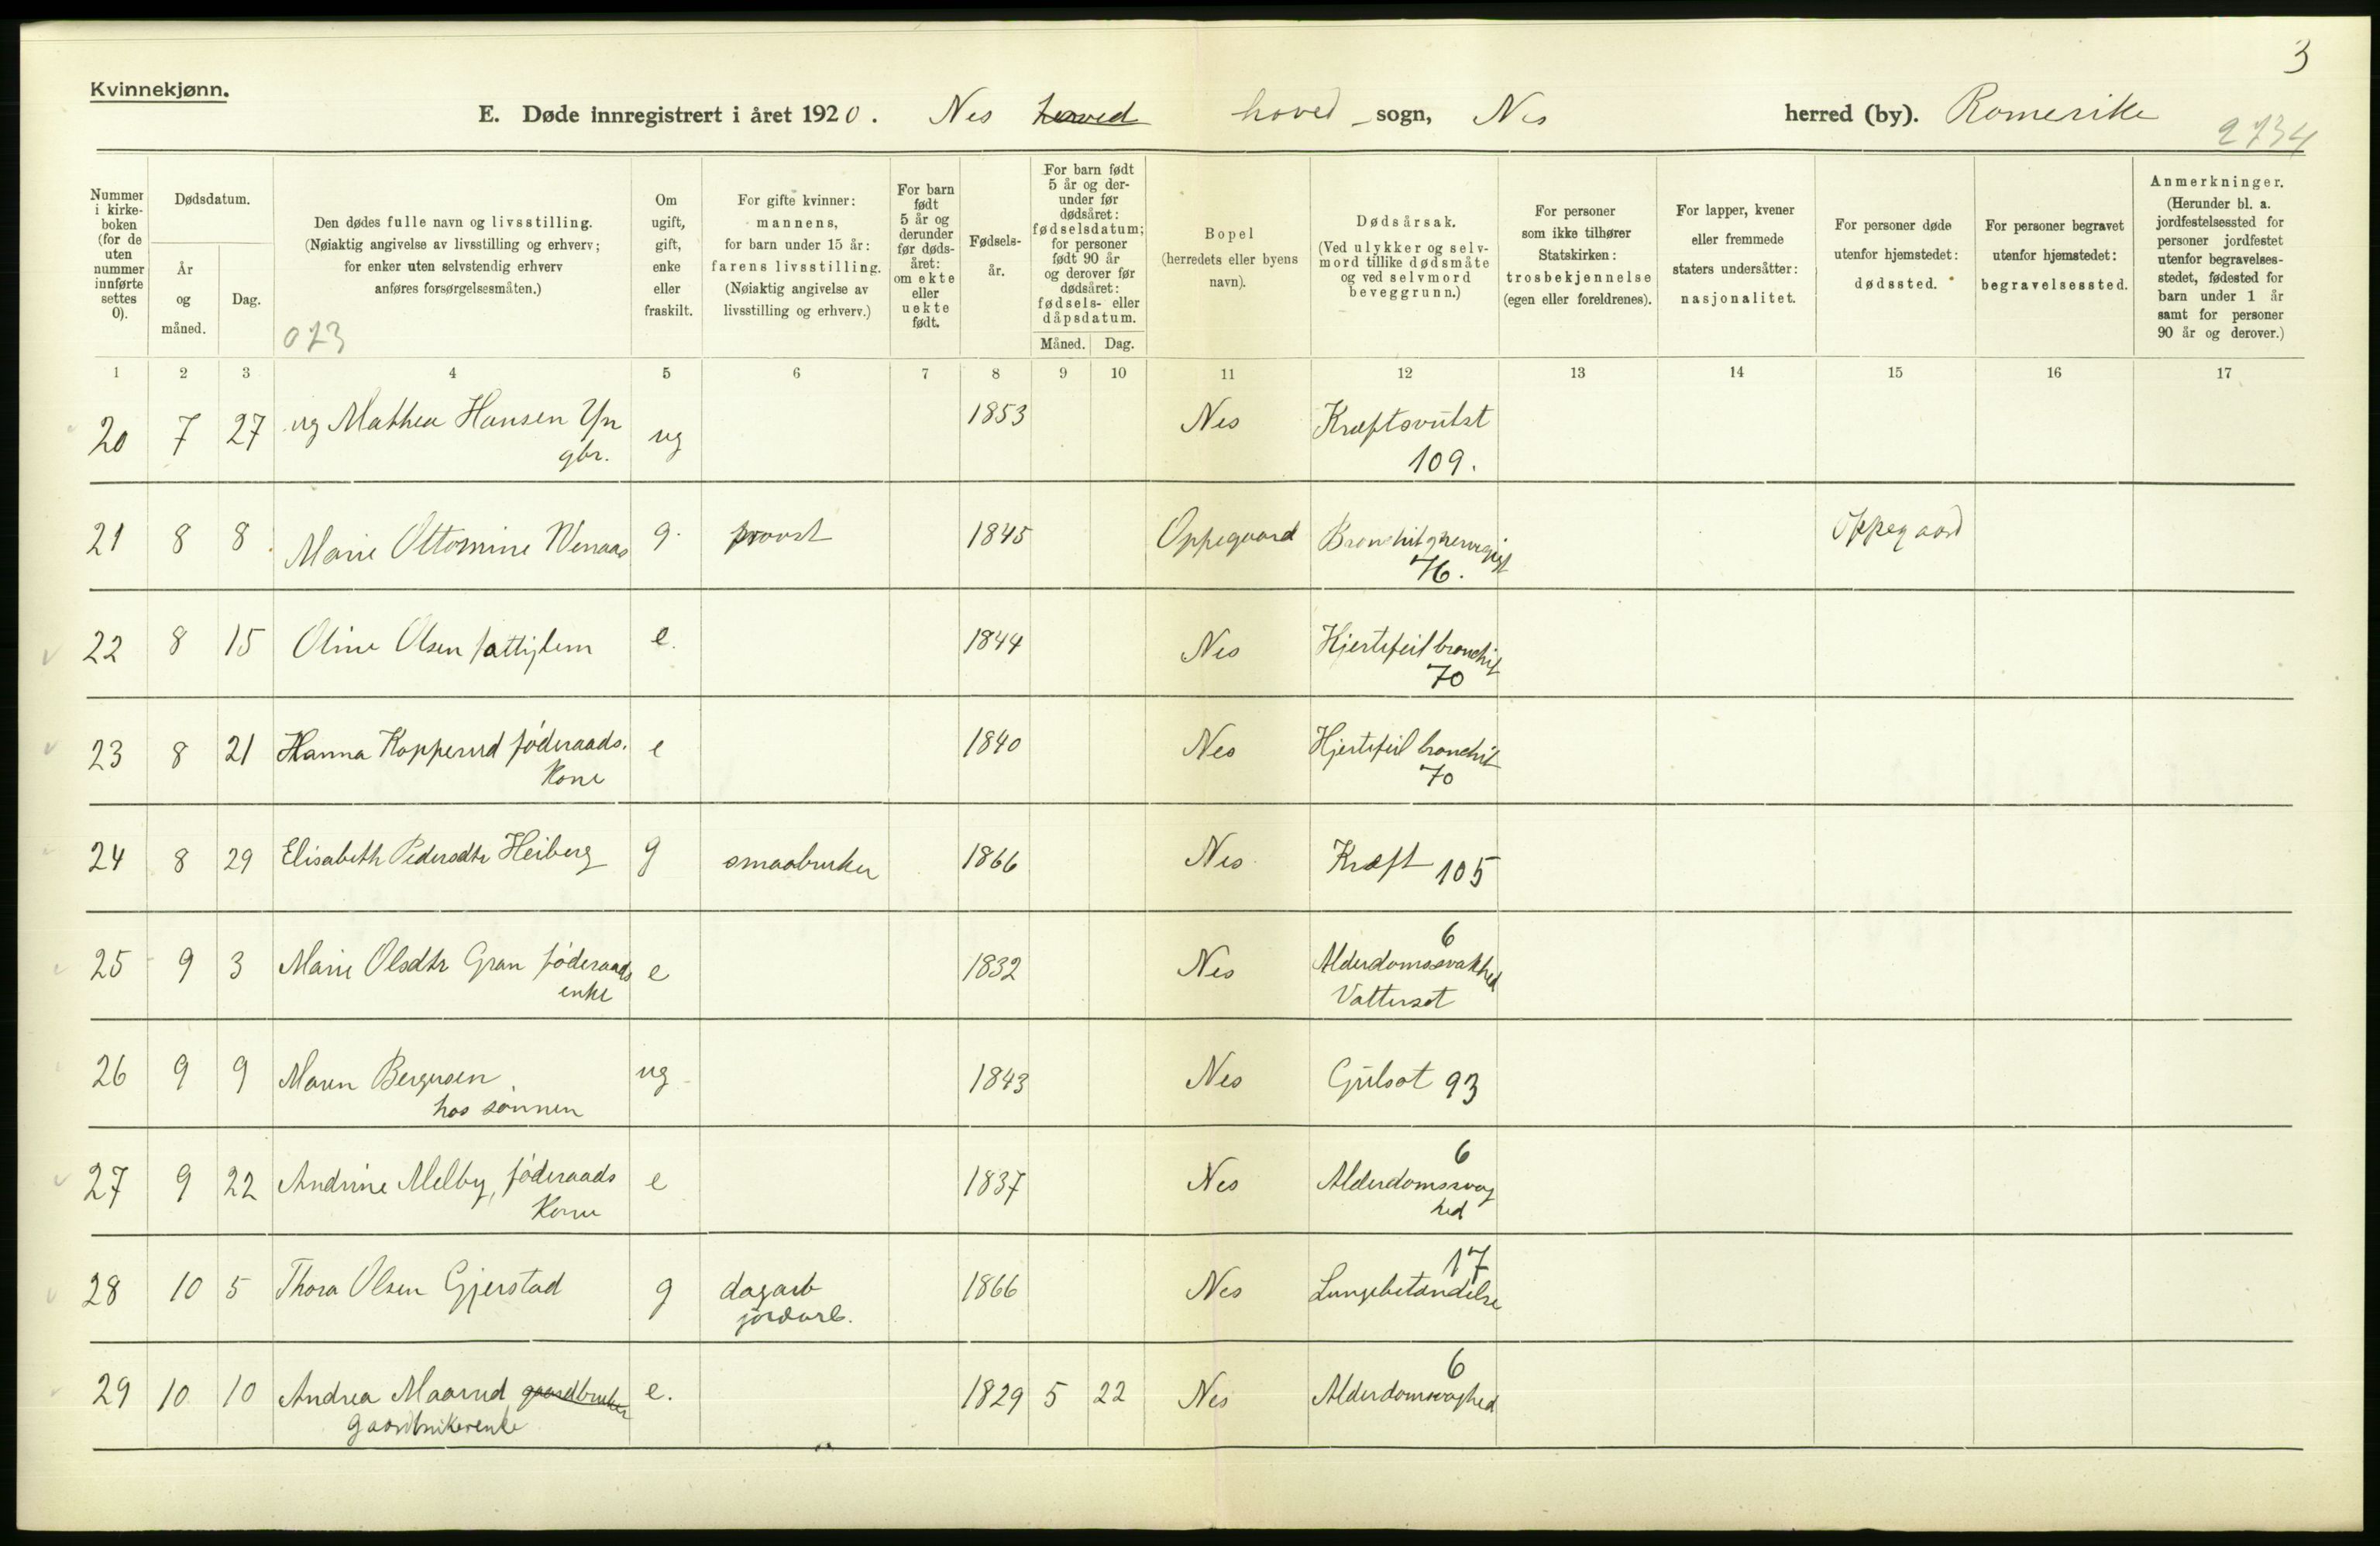 3
Kvinnekjønn.
E. Døde innregistrert i året 1920. Nes hoved hoved sogn, Nes herred (by). Romerike
2734
Nummer i kirke-boken (for de uten nummer innførte settes 0).
Dødsdatum.
År og måned.
Dag.
Den dødes fulle navn og livsstilling.
(Nøiaktig angivelse av livsstilling og erhverv;
for enker uten selvstendig erhverv
anføres forsørgelsesmåten.)
073
Om ugift, gift, enke eller fraskilt.
For gifte kvinner:
mannens,
for barn under 15 år:
farens livsstilling.
(Nøiaktig angivelse av
livsstilling og erhverv.)
For barn født 5 år og derunder før døds-året: om ekte eller uekte født.
Fødsels-år.
For barn født 5 år og der-under før dødsåret: fødselsdatum; for personer født 90 år og derover før dødsåret: fødsels- eller dåpsdatum.
Måned. Dag.
Bopel
(herredets eller byens
navn).
Dødsårsak.
(Ved ulykker og selv-
mord tillike dødsmåte
og ved selvmord
beveggrunn.)
For personer
som ikke tilhører
Statskirken:
trosbekjennelse
(egen eller foreldrenes).
For lapper, kvener
eller fremmede
staters undersåtter:
nasjonalitet.
For personer døde
utenfor hjemstedet:
dødssted.
For personer begravet
utenfor hjemstedet:
begravelsessted.
Anmerkninger.
(Herunder bl. a.
jordfestelsessted for
personer jordfestet
utenfor begravelses-
stedet, fødested for
barn under 1 år
samt for personer
90 år og derover.)
1 2 3 4 5 6 7 8 9 10 11 12 13 14 15 16 17
20 7 27 ug Mathea Hansen Yn ug 1853 Nes Kræftsvulst
gbr. 109.
21 8 8 Marie Ottomine Wenaas g. provst 1845 Oppegaard Bronchit Oppegaard
76.
22 8 15 Oline Olsen fattiglem e. 1844 Nes Hjertefeil bronchit
70
23 8 21 Hanna Kopperud föderaads. e 1840 Nes Hjertefeil bronchit
Kone 70
24 8 29 Elisabeth Pedersdtr Heiberg g smaabruker 1866 Nes Kræft 105
6
25 9 3 Marie Olsdtr Gran föderaads e 1832 Nes Alderdomssvakhed
enke Vattersot
26 9 9 Maren Bergersen ug 1843 Nes Gulsot 93
hos sønnen
6
27 9 22 Andrine Melby, föderaads e 1837 Nes Alderdomssvag
Kone hed
17
28 10 5 Thora Olsen Gjerstad g dagarb 1866 Nes Lungebetændelse
jordarb.
6
29 10 10 Andrea Maarud gaardbruker e. 1829 5 22 Nes Alderdomsvaghed
gaardbrukerenke